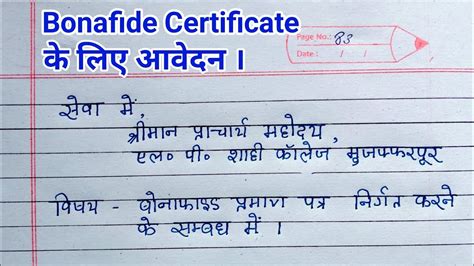 Bonafide Certificate
के लिए आवेदन ।
Page No.: 83
Date : / /
सेवा में,
श्रीमान प्राचार्य महोदय,
एल० पी० शाही कॉलेज मुजफ्फरपूर
विषय - बोनाफाइड प्रमाण पत्र निर्गत करने
के सम्बंध में ।